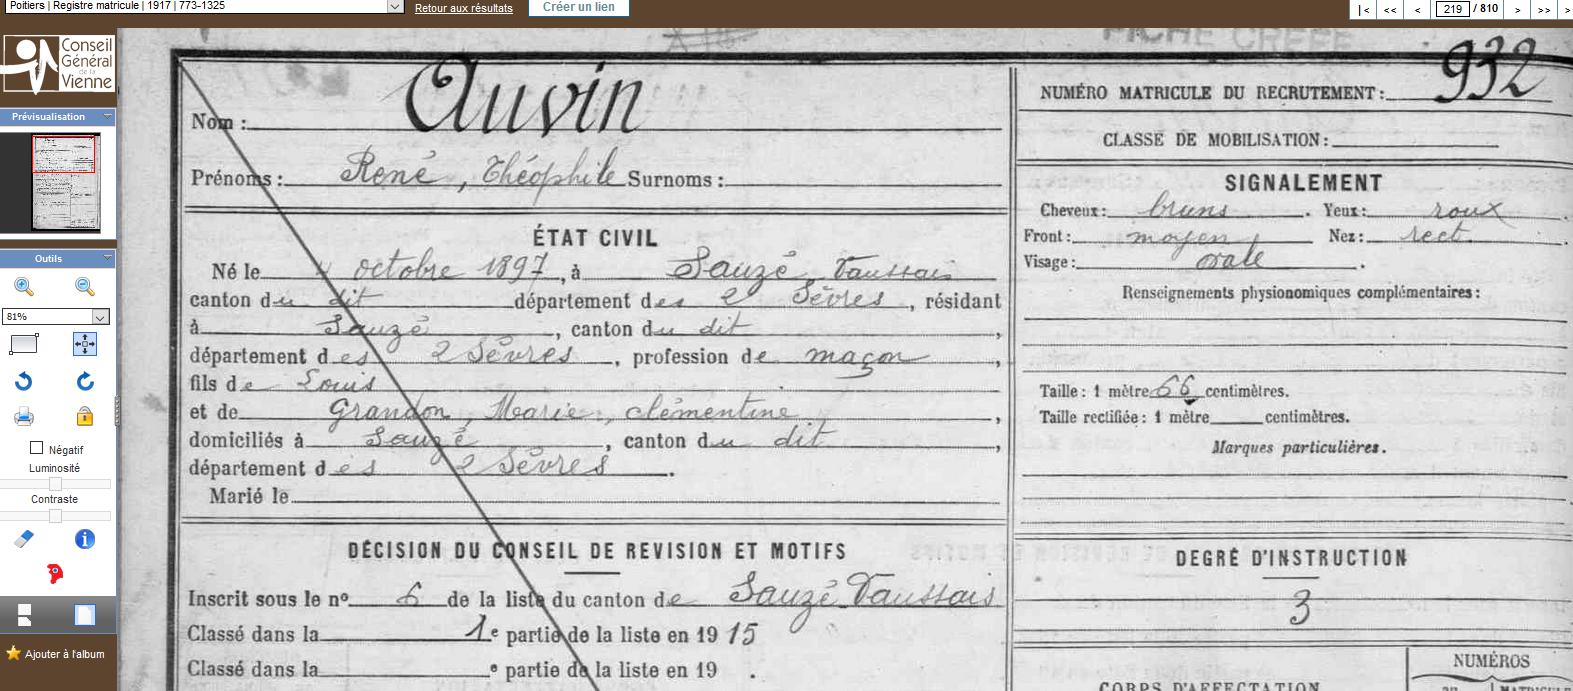 Poitiers | Registre matricule | 1917 | 773-1325
Retour aux résultats
Créer un lien
|< << < 219 / 810 > >> >
Conseil
Général
de la
Vienne
Prévisualisation
Outils
81%
Négatif
Luminosité
Contraste
Ajouter à l'album
932
NUMÉRO MATRICULE DU RECRUTEMENT :
Nom : Auvin
CLASSE DE MOBILISATION :
Prénoms : René, Théophile Surnoms :
ÉTAT CIVIL
Né le octobre 1897, à Sauzé Vaussais
canton du dit département des 2 Sèvres, résidant
à Sauzé, canton du dit,
département des 2 Sèvres, profession de maçon,
fils de Louis
et de Grandon, Marie, clémentine,
domiciliés à Sauzé, canton du dit,
département des 2 Sèvres.
Marié le
DÉCISION DU CONSEIL DE REVISION ET MOTIFS
Inscrit sous le nº 6 de la liste du canton de Sauzé-Vaussais
Classé dans la 1e partie de la liste en 1915
Classé dans la e partie de la liste en 19 .
SIGNALEMENT
Cheveux : bruns. Yeux : roux.
Front : moyen Nez : rect.
Visage : ovale.
Renseignements physionomiques complémentaires :
Taille : 1 mètre 66 centimètres.
Taille rectifiée : 1 mètre centimètres.
Marques particulières.
DEGRÉ D'INSTRUCTION
3
NUMÉROS
CORPS D'AFFECTATION